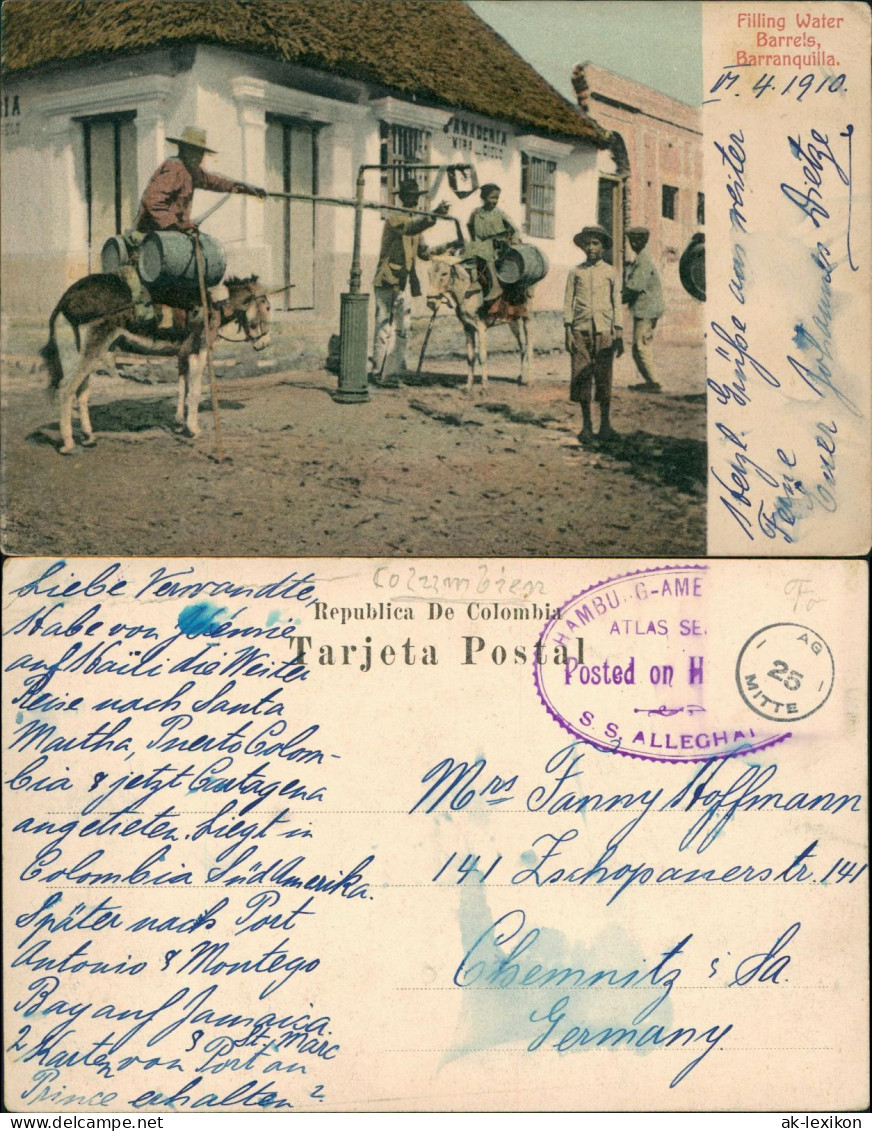 Filling Water
Barrels,
Barranquilla.
VI. 4. 1910.
Herzl. Grüße aus weiter
Ferne
Euer Johannes Dietze
ANADERIA
Liebe Verwandte,
Habe von
auf Haïti die Weiter
Reise nach Santa
Martha, Puerto Colom-
bia & jetzt Cartagena
angetreten. Liegt in
Colombia Süd Amerika.
Später nach Port
Antonio & Montego
Bay auf Jamaica.
2 Karten von St. Marc
& Port au
Prince erhalten?
Columbien
Republica De Colombia
Tarjeta Postal
HAMBU G-AME
ATLAS SE
Posted on H
S. S. ALLEGHA
AG
25
MITTE
Mrs Fanny Hoffmann
141 Zschopauerstr. 141
Chemnitz i Sa.
Germany
ak-lexikon.com